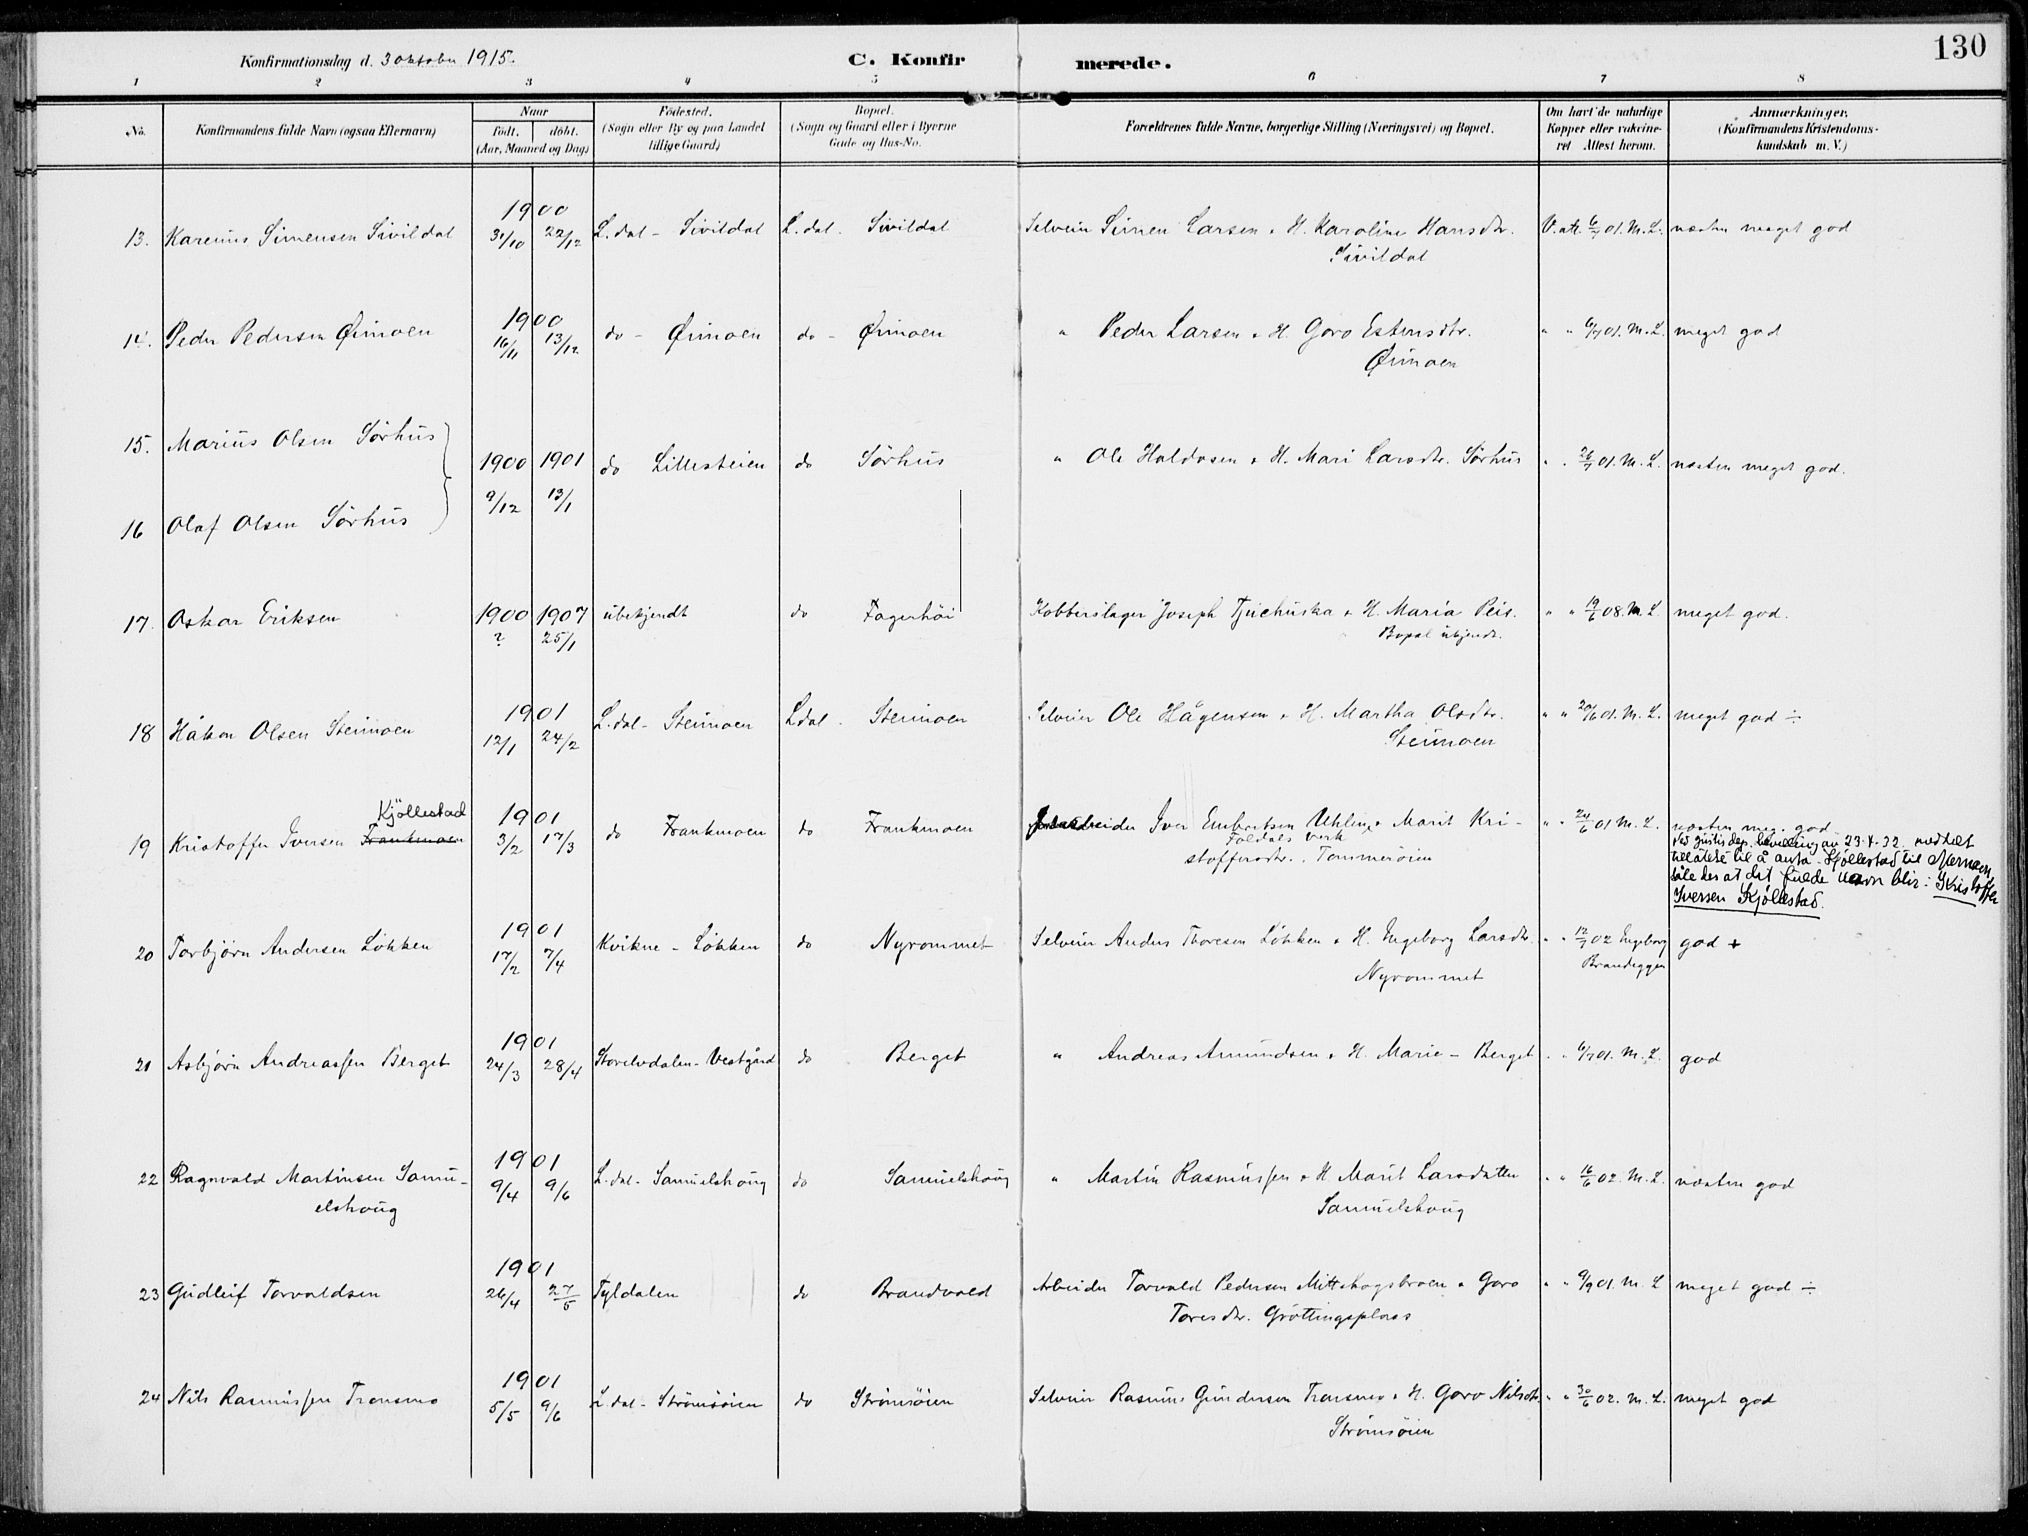 130
Konfirmationsdag d. 3 oktober 1915.
C. Konfirmerede.
1 2 3 4 5 6 7 8
No.
Konfirmandens fulde Navn (ogsaa Efternavn)
Naar
født. døbt.
(Aar, Maaned og Dag)
Fødested.
(Sogn eller By og paa Landet
tillige Gaard)
Bopæl.
(Sogn og Gaard eller i Byerne
Gade og Hus-No.
Forældrenes fulde Navne, borgerlige Stilling (Næringsvei) og Bopæl.
Om havt de naturlige
Kopper eller vakcine-
ret Attest herom.
Anmærkninger.
(Konfirmandens Kristendoms-
kundskab m. V.)
1900
13. Karenus Simensen Sivildal 31/10 22/12 L.dal - Sivildal L.dal. Sivildal Selveier Simen Larsen & H. Karoline Hansdtr. V. att. 6/7 01. M. L. næsten meget god
Sivildal
1900
14. Peder Pedersen Øimoen 16/11 13/12 do - Øimoen do - Øimoen " Peder Larsen & H. Goro Estensdtr. " " 6/7 01. M. L. meget god
Øimoen
15. Marius Olsen Sørhus
1900 1901 do Lillesteien do Sørhus " Ole Haldosen & H. Mari Larsdtr. Sørhus " . 26/7 01. M. L. næsten meget god.
9/12 13/1
16 Olaf Olsen Sørhus
17. Oskar Eriksen 1900 1907 ubekjendt do Fagerhöi Kobberslager Joseph Tjuchuska & H. Maria Peis. " " 19/6 08. M. L. meget god.
? 25/1 Bopæl ukjendt.
1901
18 Håkon Olsen Steimoen 12/1 24/2 L.dal - Steimoen Ldal. Steimoen Selveier Ole Hågensen & H. Martha Olsdtr. " " 20/6 01. M. L. meget god ÷
Steimoen
Kjöllestad
1901
19 Kristoffer Iversen Frankmoen 3/2 17/3 do Frankmoen do Frankmoen Iver Embretsen Uhling & Marit Kri- " " 24/6 01 M. L. næsten meg. god
Foldals verk
stoffersdtr. . Tommerøien
Ved justisdep. bevilling av 23-4-32 meddelt
tillatelse til å anta Kjöllestad til efternavn,
således at det fulde navn blir: Kristoffer
Iversen Kjöllestad.
1901
20 Torbjørn Andersen Løkken 17/2 7/4 Kvikne - Løkken do Nyrommet Selveier Anders Thoresen Løkken & H. Engeborg Larsdtr. " " 12/7 02 Engeborg god +
Nyrommet Brandeggen
1901
21 Asbjørn Andreassen Berget 24/3 28/4 Storelvdalen - Vestgård do Berget " Andreas Amundsen & H. Marie - Berget . " 6/7 01. M. L. god
1901
22 Ragnvald Martinsen Samu- 9/4 9/6 L.dal - Samuelshoug do Samuelshoug " Martin Rasmussen & H Marit Larsdatter " " 16/6 02. M. L. næsten god
elshoug Samuelshoug
1901
23 Gudleif Torvaldsen 26/4 27/5 Tyldalen do Brandvold Arbeider Torvald Pedersen Mittskogsbroen & Goro " " 9/9 01. M. L meget god ÷
Toresdtr. Gröttingsplass
1901
24 Nils Rasmussen Tronsmo 5/5 9/6 L.dal - Strømsøien do Strømsøien Selveier Rasmus Gundersen Tronsmo & H. Goro Nilsdtr. " " 30/6 02. M. L. meget god
Strømsøien